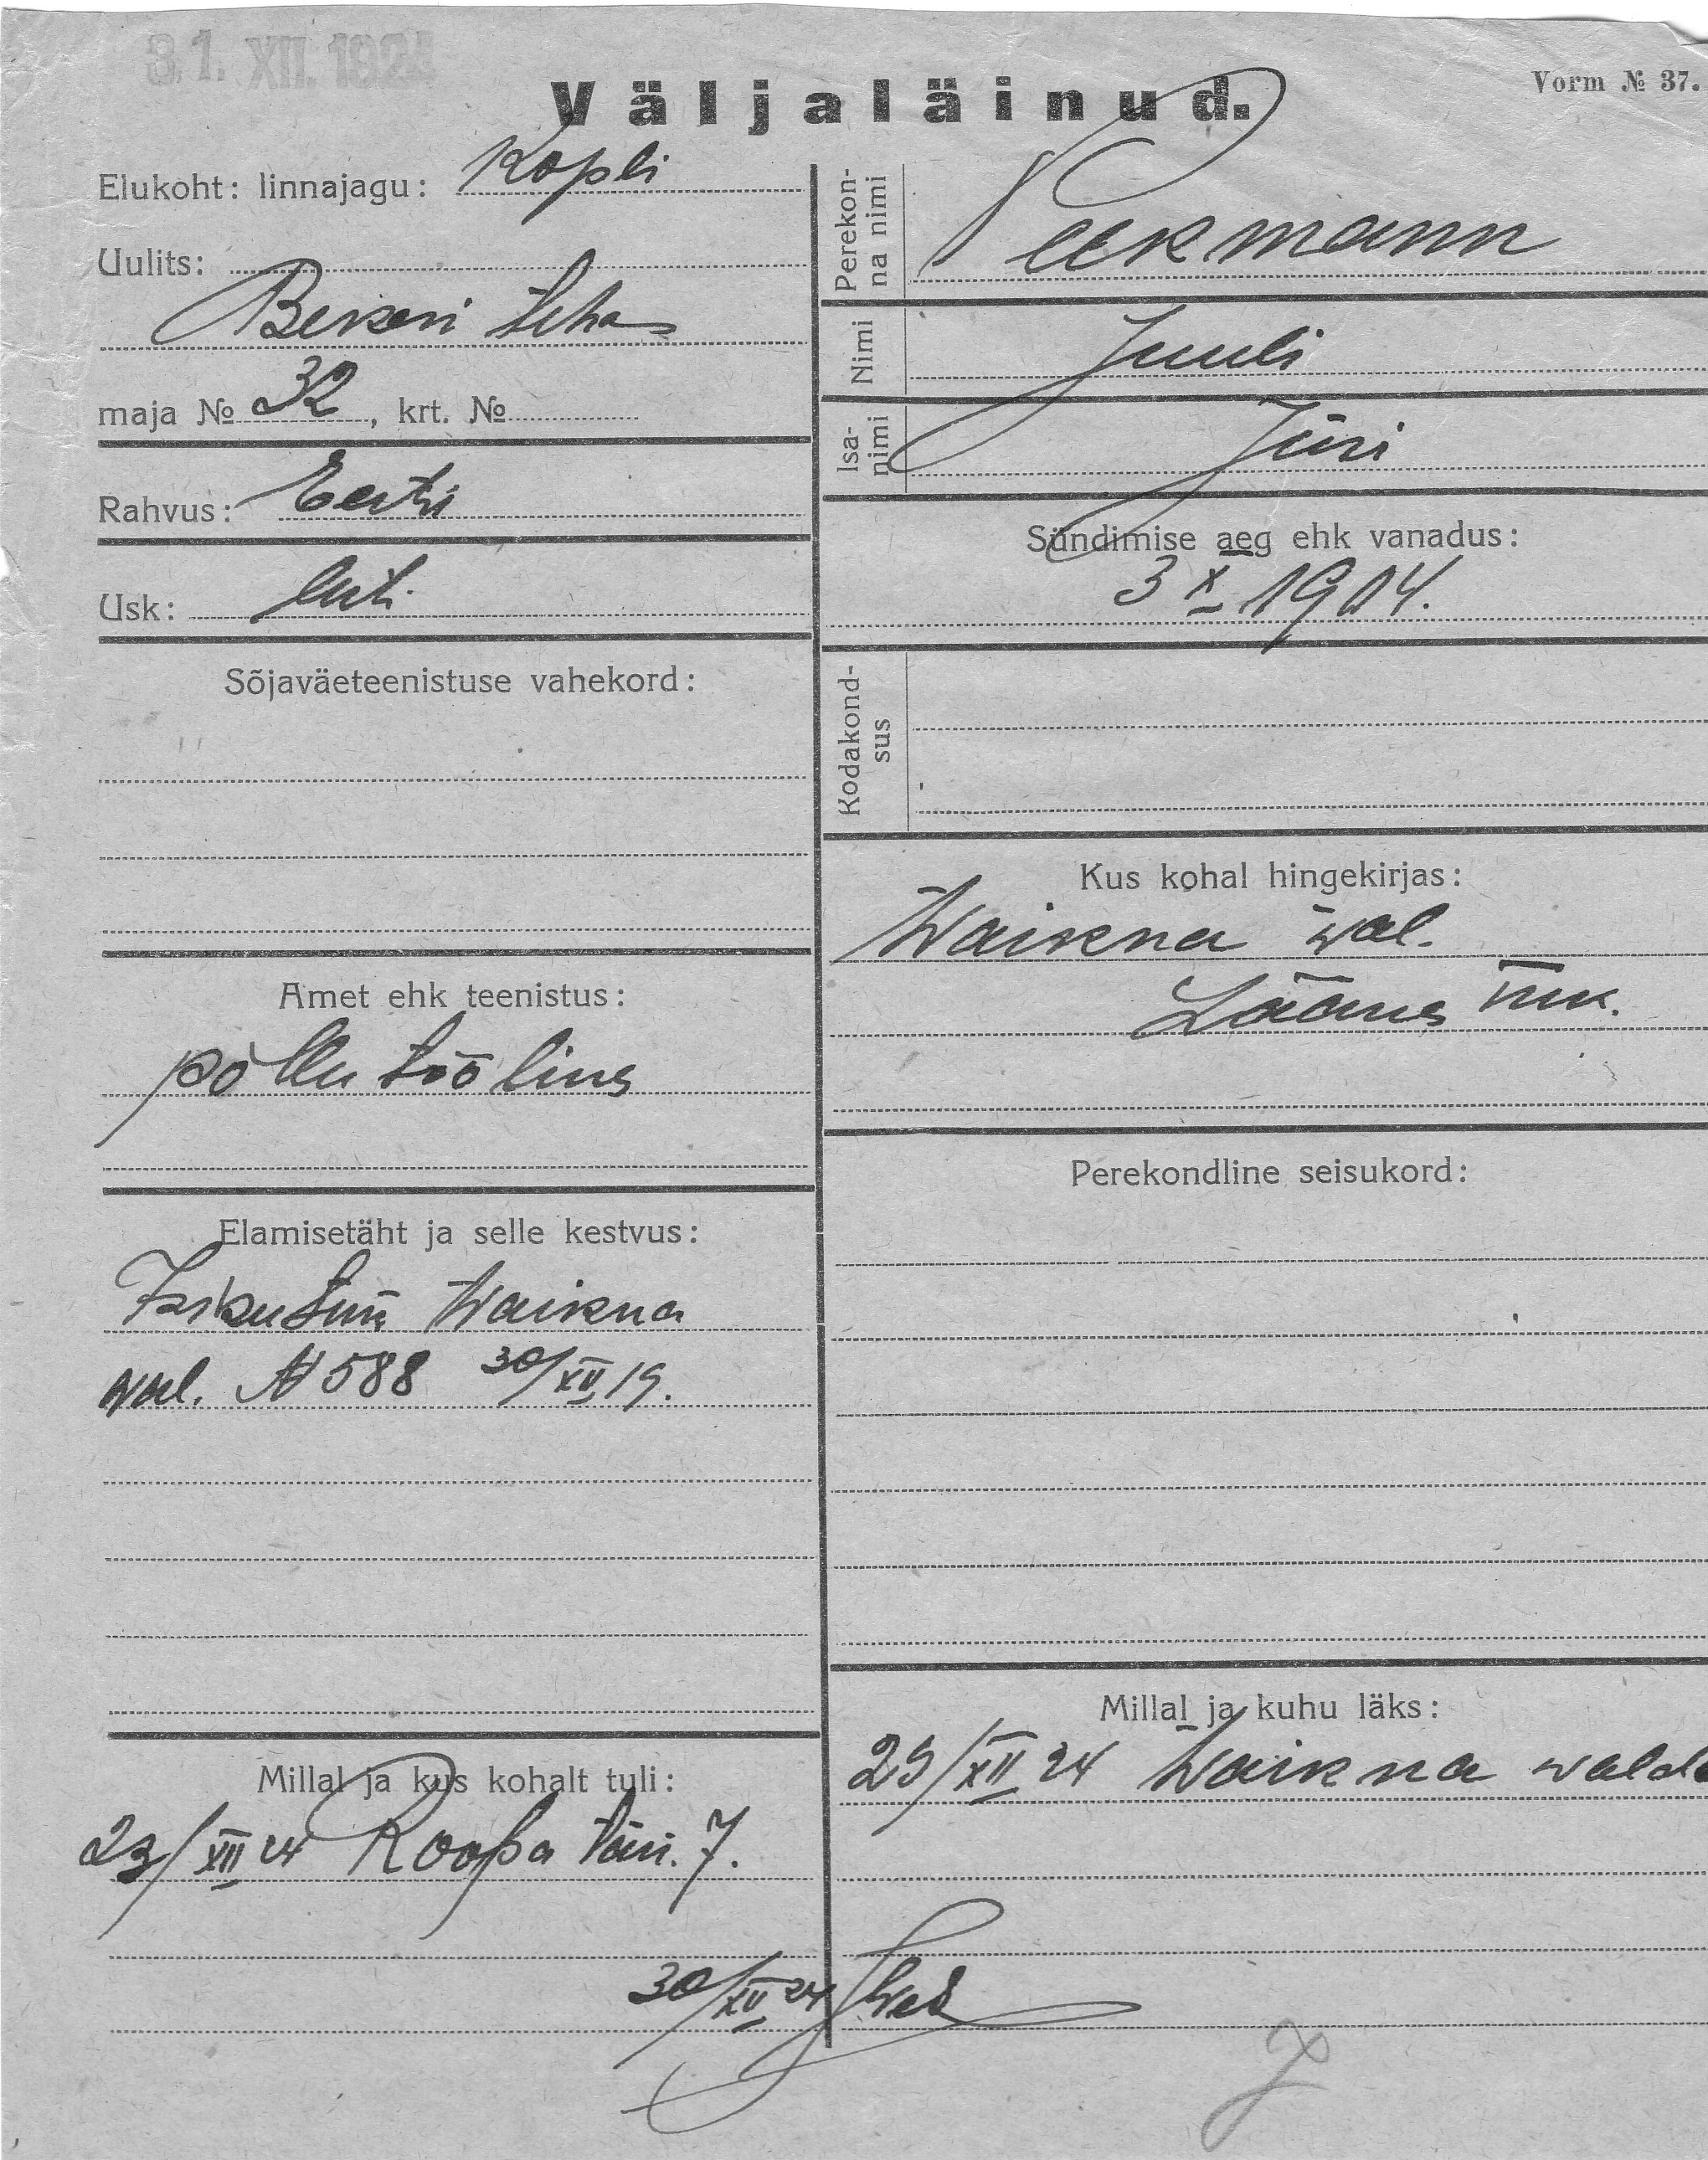 31. XII. 1924
Vorm № 37.
Väljaläinud.
Elukoht: linnajagu: Kopli
Uulits:
Bekeri tehas
maja № 32, krt. №
Rahvus: Eesti
Usk: lut.
Sõjaväeteenistuse vahekord:
Amet ehk teenistus:
põllutööline
Elamisetäht ja selle kestvus:
Isikutun. Waikna
wal. № 588 30/XII 19.
Millal ja kus kohalt tuli:
23/XII 24 Roopa tän. 7.
Perekon-
na nimi
Peekmann
Nimi
Juuli
Isa-
nimi
Jüri
Sündimise aeg ehk vanadus:
3 X 1904.
Kodakond-
sus
Kus kohal hingekirjas:
Waikna wal.
Lääne mk.
Perekondline seisukord:
Millal ja kuhu läks:
29/XII 24 Waikna walda
30/XII 24